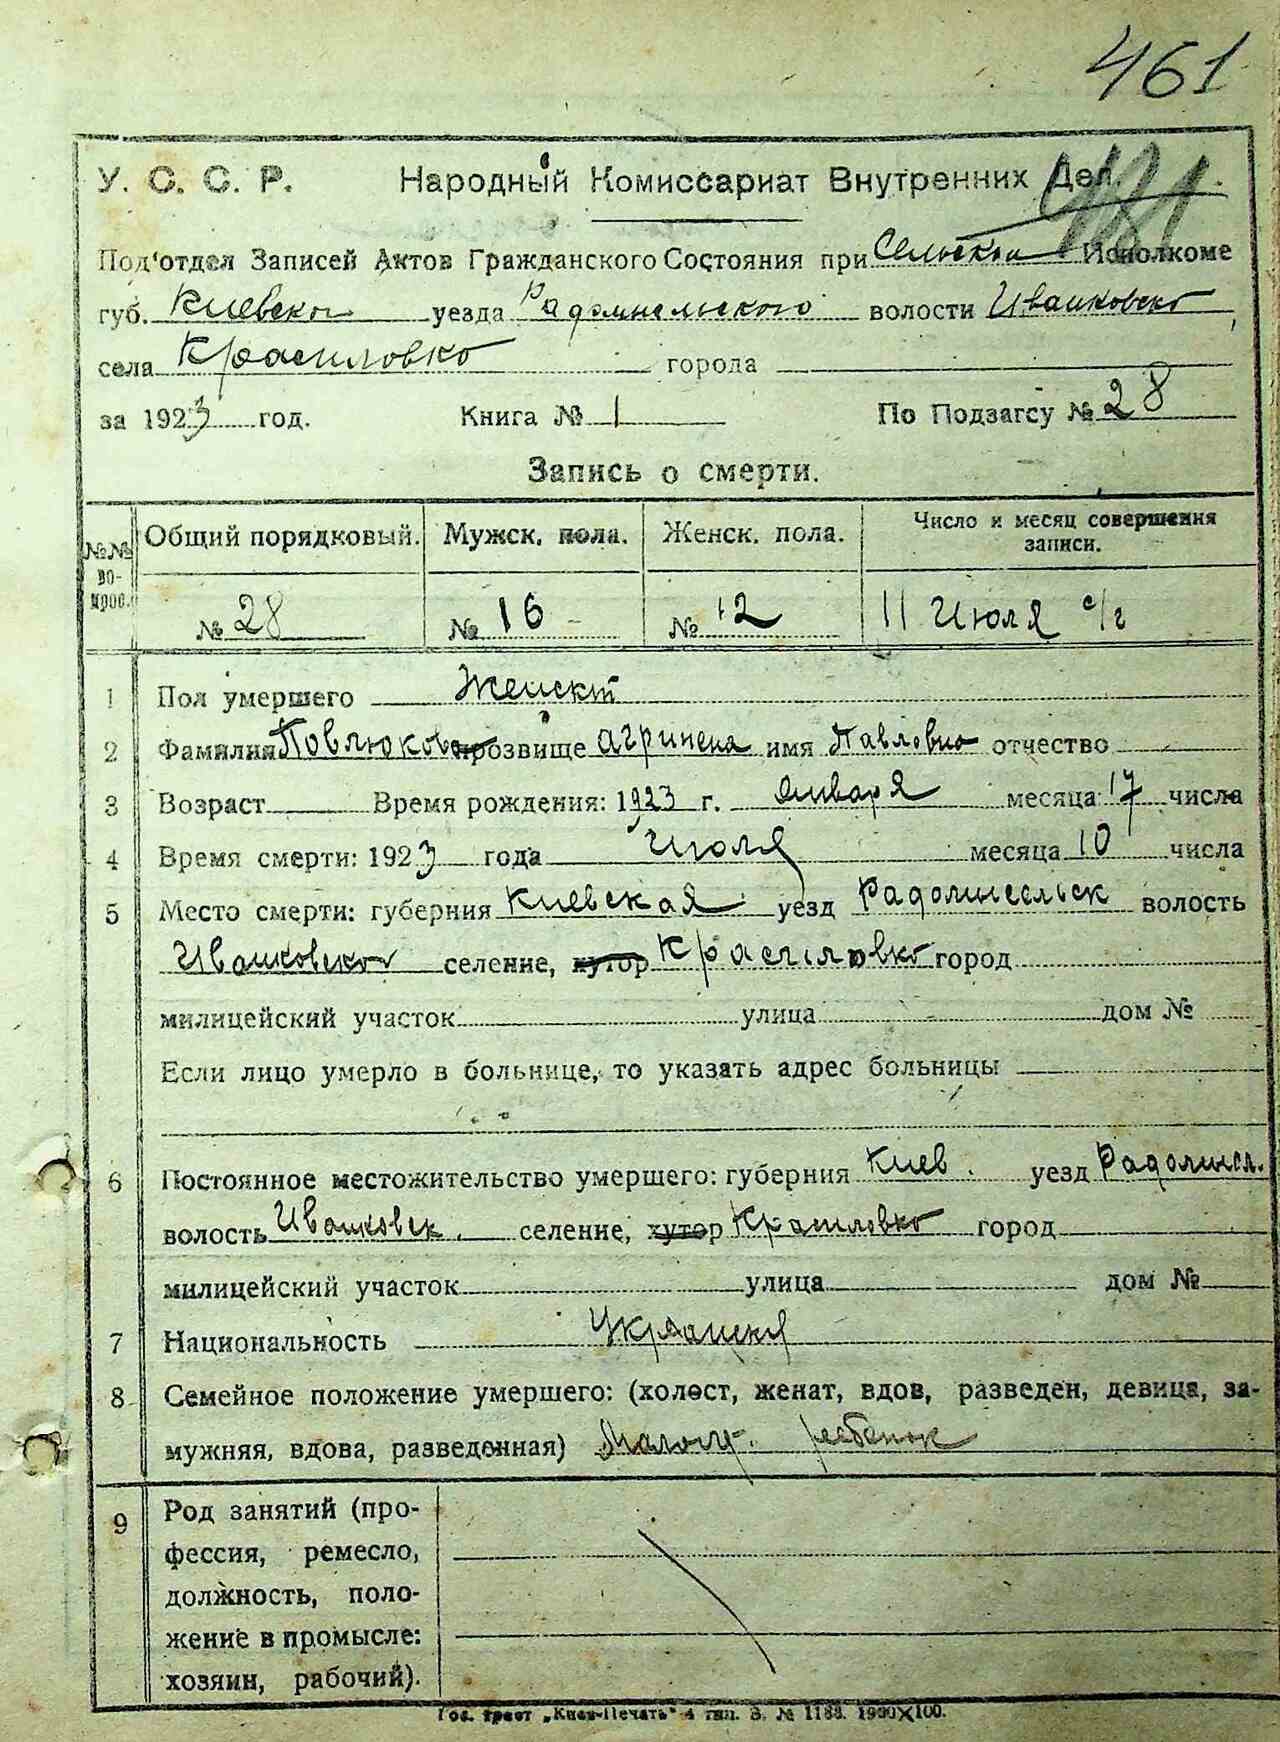 461
У. С. С. Р. Народный Комиссариат Внутренних Дел.
Под'отдел Записей Актов Гражданского Состояния при Сельском Исполкоме
губ. Киевской уезда Радомысльского волости Иванковской
села Красиловко города
за 1923 год. Книга № 1 По Подзагсу № 28
Запись о смерти.
№№ вопрос. Общий порядковый. Мужск. пола. Женск. пола. Число и месяц совершения записи.
№ 28 № 16 № 12 11 Июля с/г
1 Пол умершего Женский
2 Фамилия Повлюкова прозвище Агринена имя Павловна отчество
3 Возраст Время рождения: 1923 г. Января месяца 17 числа
4 Время смерти: 1923 года Июля месяца 10 числа
5 Место смерти: губерния Киевская уезд Радомысельск волость
Иванковской селение, хутор Красиловко город
милицейский участок улица дом №
Если лицо умерло в больнице, то указать адрес больницы
6 Постоянное местожительство умершего: губерния Киев. уезд Радомисл.
волость Иванковск. селение, хутор Красиловко город
милицейский участок улица дом №
7 Национальность
8 Семейное положение умершего: (холост, женат, вдов, разведен, девица, за-
мужняя, вдова, разведенная) ребенок
9 Род занятий (про-
фессия, ремесло,
должность, поло-
жение в промысле:
хозяин, рабочий).
Гос. трест „Киев-Печать" 4 тип. З. № 1183. 1900×100.